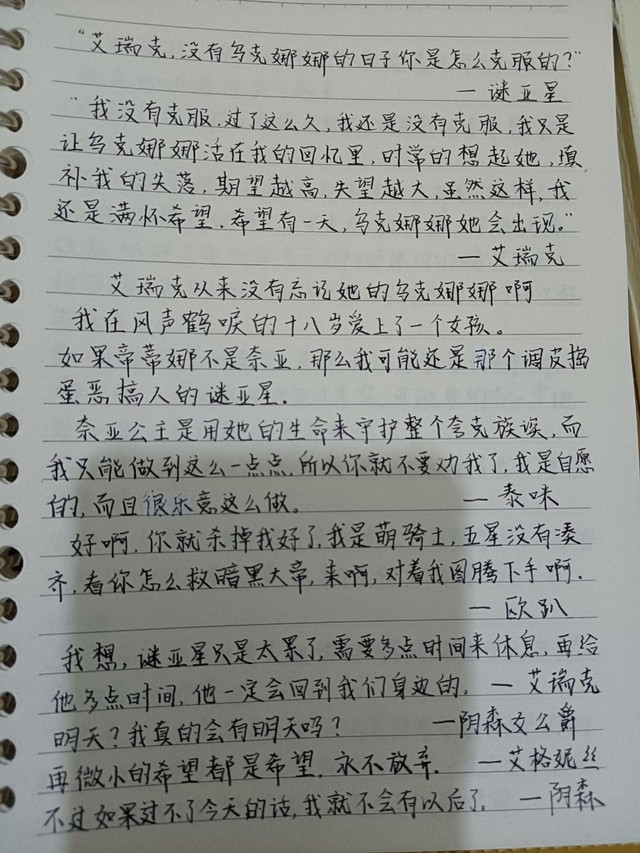 “艾瑞克，没有乌克娜娜的日子你是怎么克服的？”
— 谜亚星
“我没有克服，过了这么久，我还是没有克服，我只是
让乌克娜娜活在我的回忆里，时常的想起她，填
补我的失落，期望越高，失望越大，虽然这样，我
还是满怀希望，希望有一天，乌克娜娜她会出现。”
— 艾瑞克
艾瑞克从来没有忘记她的乌克娜娜啊
我在风声鹤唳的十八岁爱上了一个女孩。
如果帝蒂娜不是奈亚，那么我可能还是那个调皮捣
蛋恶搞人的谜亚星．
奈亚公主是用她的生命来守护整个夸克族误，而
我只能做到这么一点点，所以你就不要劝我了，我是自愿
的，而且很乐意这么做。 — 泰咪
好啊，你就杀掉我好了，我是萌骑士，五星没有凑
齐，看你怎么救暗黑大帝，来啊，对着我图腾下手啊．
— 欧趴
我想，谜亚星只是太累了，需要多点时间来休息，再给
他多点时间，他一定会回到我们身边的。 — 艾瑞克
明天？我真的会有明天吗？ —阴森女公爵
再微小的希望都是希望．永不放弃． —艾格妮丝
不过如果过不了今天的话，我就不会有以后了． —阴森